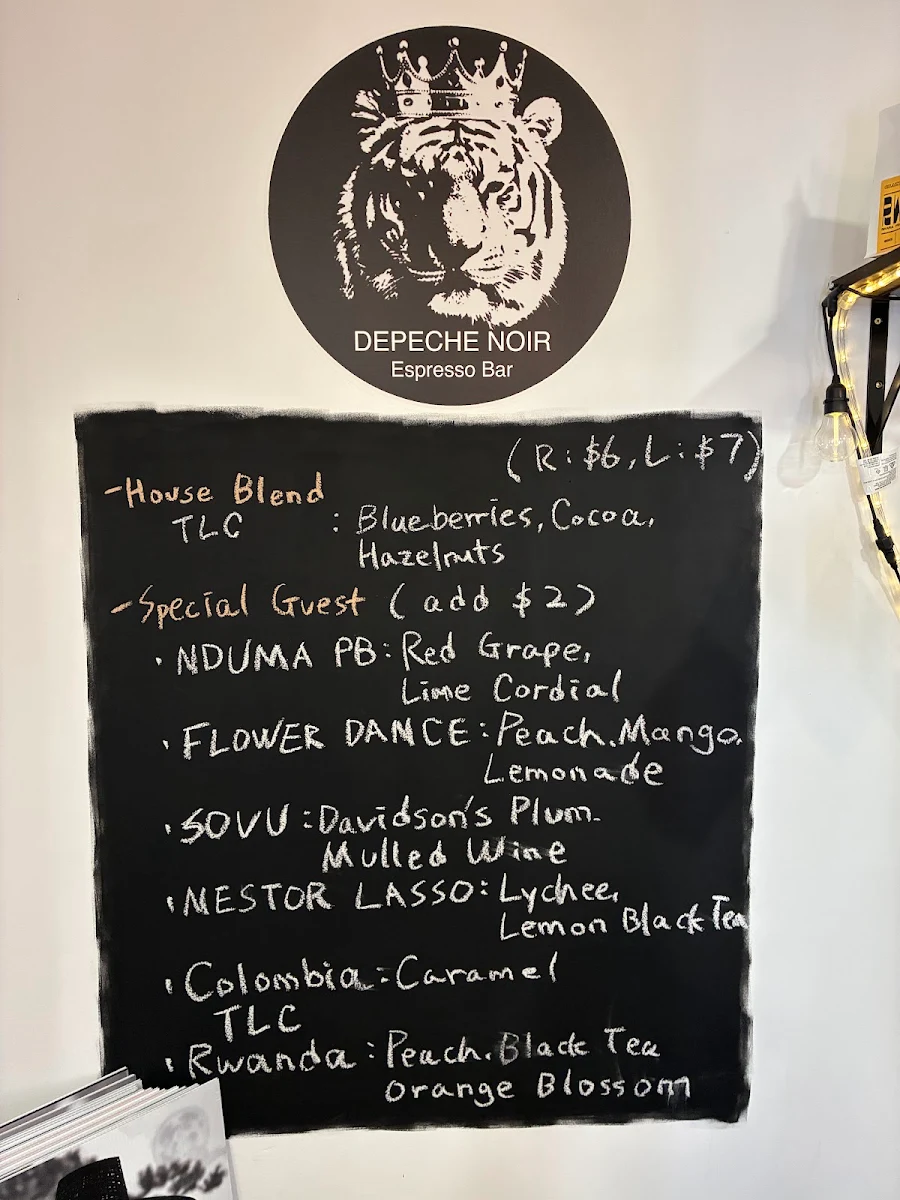 DEPECHE NOIR
Espresso Bar
(R:$6, L:$7)
-House Blend
TLC : Blueberries, Cocoa,
Hazelnuts
-Special Guest (add $2)
· NDUMA PB: Red Grape,
Lime Cordial
· FLOWER DANCE: Peach, Mango,
Lemonade
· SOVU: Davidson's Plum,
Mulled Wine
· NESTOR LASSO: Lychee,
Lemon Black Tea
· Colombia: Caramel
TLC
· Rwanda: Peach, Black Tea
Orange Blossom